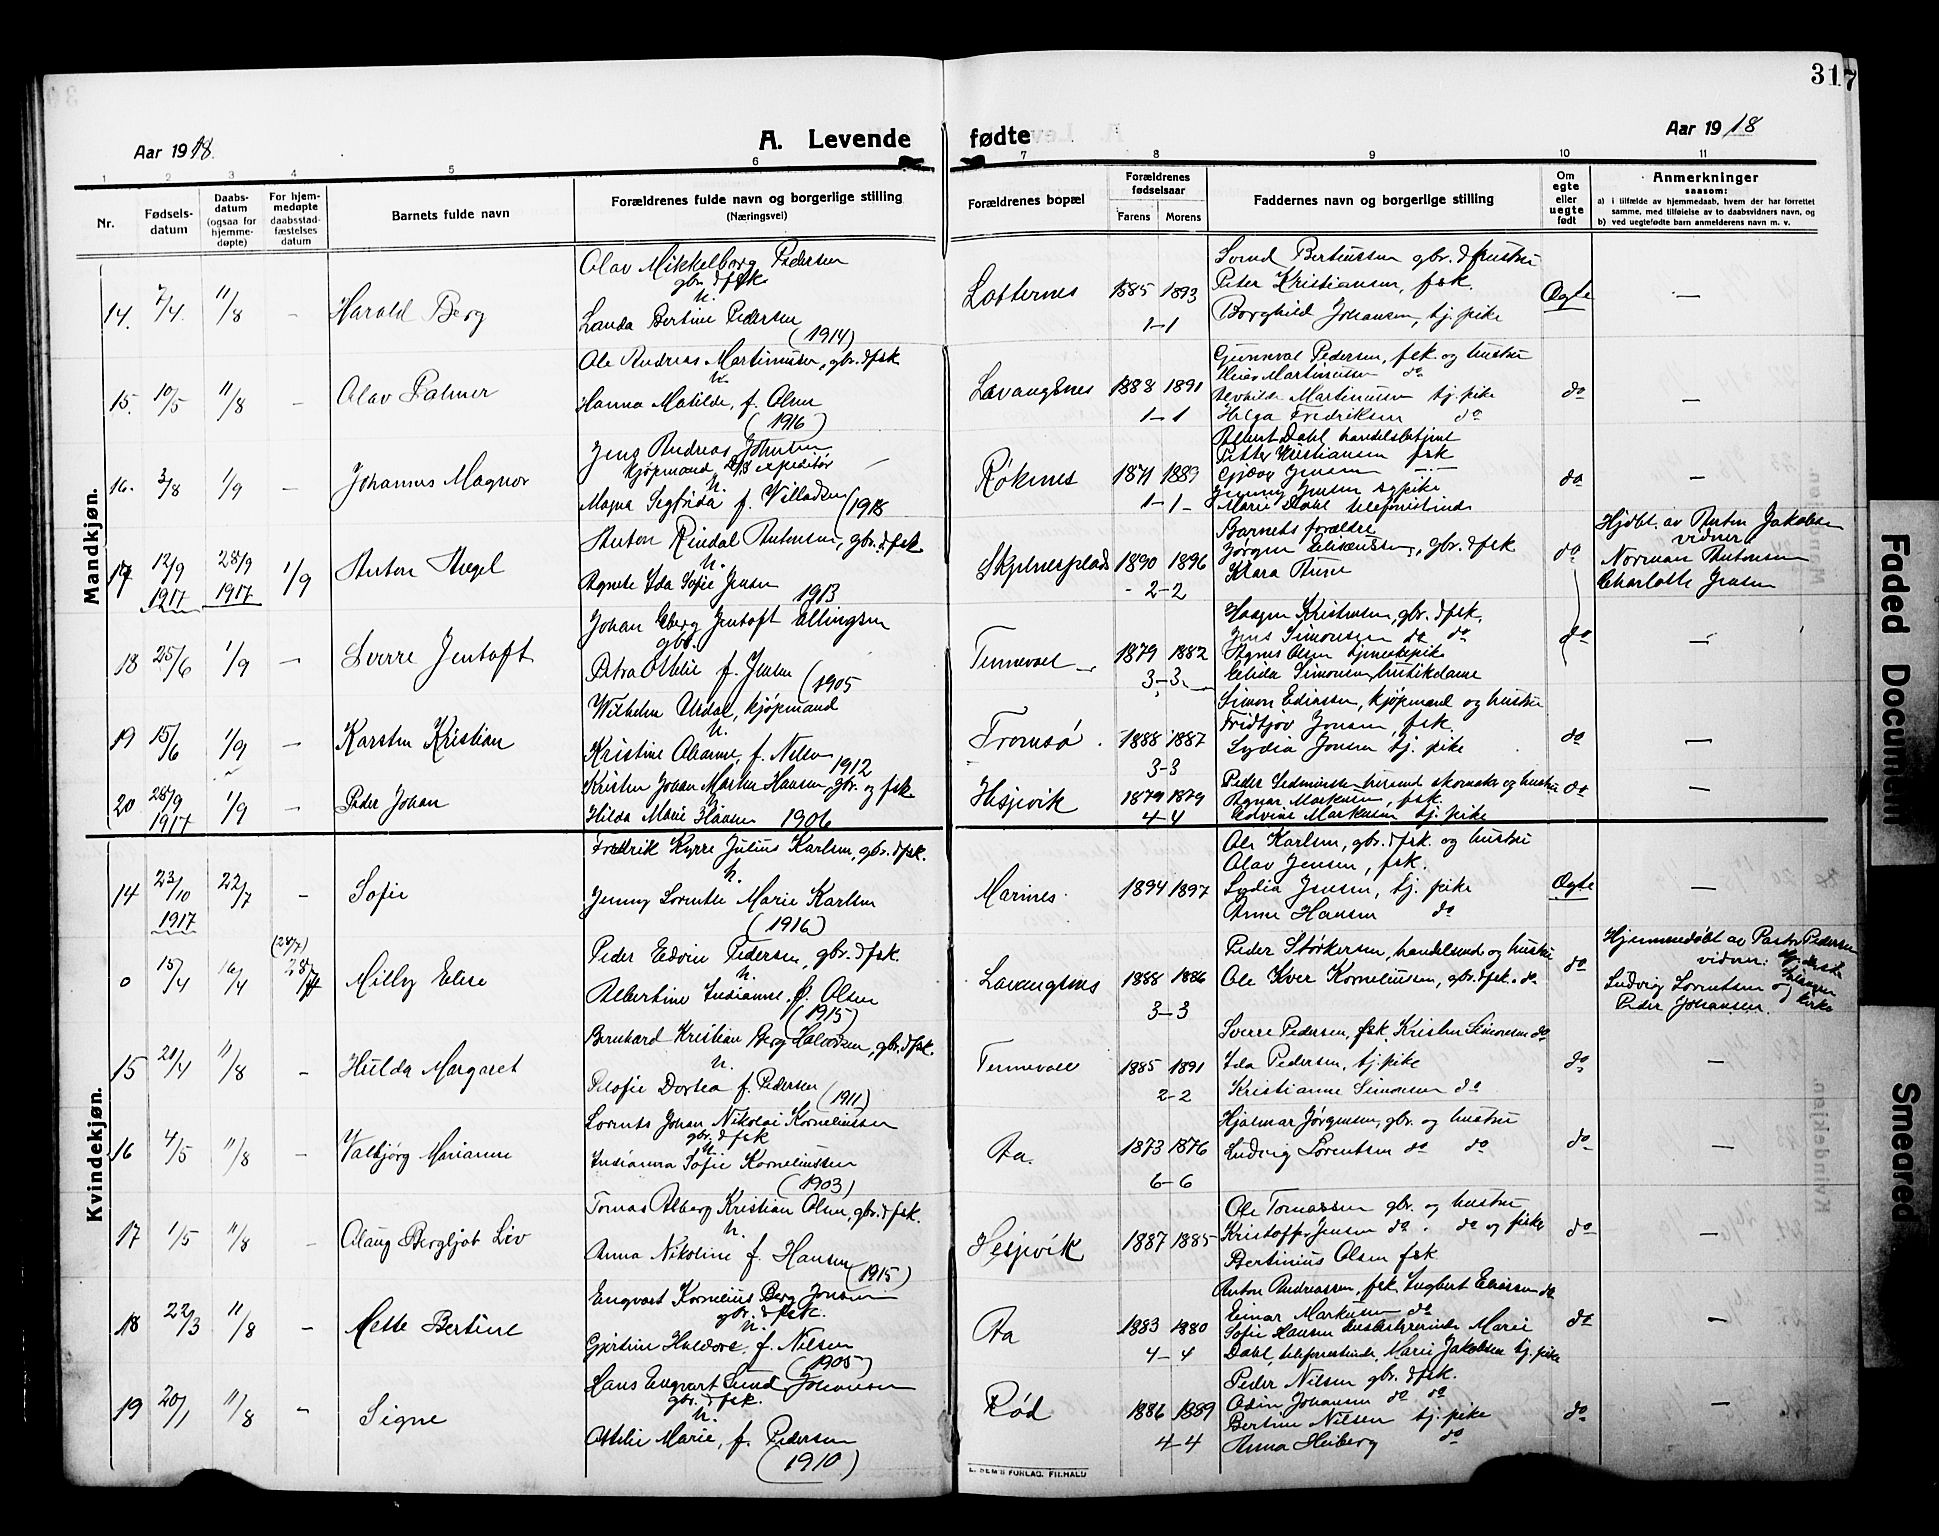 317
Aar 1918.
A. Levende fødte
Aar 1918
1 2 3 4 5 6 7 8 9 10 11
Nr.
Fødsels-
datum
Daabs-
datum
(ogsaa for
hjemme-
døpte)
For hjem-
medøpte
daabsstad-
fæstelses
datum
Barnets fulde navn
Forældrenes fulde navn og borgerlige stilling
(Næringsvei)
Forældrenes bopæl
Forældrenes
fødselsaar
Farens Morens
Faddernes navn og borgerlige stilling
Om
egte
eller
uegte
født
Anmerkninger
saasom:
a) i tilfælde av hjemmedaab, hvem der har forrettet
samme, med tilføielse av to daabsvidners navn, og
b) ved uegtefødte barn anmelderens navn m. v.
Mandkjøn.
14. 7/4. 11/8 – Harald Berg
Olav Mikkelborg Pedersen
gbr. & fsk
h.
Landa Bertine Pedersen
(1914)
1885 1893
1–1
Svend Berteussen gbr. & hustru
Peter Kristiansen, fsk.
Borghild Johansen, tj. pike
Ægte –
15. 10/5 11/8 – Olav Palmer
Ole Andreas Martinussen, gbr. & fsk
h.
Hanna Matilde, f. Olsen
(1916)
Lavangsnes 1888 1891
1–1
Gunnval Pedersen, fsk. og hustru
Martinussen do
Martinussen tj. pike
Helga Fredriksen do
do –
16. 3/8 1/9 – Johannes Magnor
Jens Andreas Johnsen
kjøpmand, D/S expeditør
h.
Magna Segfrida f. Willadsen (1918
Røkenes 1871 1889
1–1
Albert Dahl handelsbetjent
Petter Kristiansen fsk
Jensen
Jenny Jensen sypike
Marie Dahl telefonistinde
do –
17 12/9 1917 28/9 1917 1/9 Anton Hegel
Anton Rindal Antonsen, gbr. & fsk
h.
Agnete Ida Sofie Jensen 1913
Skjelnesplads 1890 1896
2–2
Barnets forældre
Jørgen Eliseussen, gbr. & fsk
Klara Rune
do
Hjdbt. av Anton Jakobsen
vidner
Norman Antonsen
Charlotte Jensen
18 25/6 1/9 – Sverre Jentoft
Johan Eberg Jentoft Ellingsen
gbr.
Petra Otelie f. Jensen (1905
Tennevoll 1879 1882
3–3
Haagen Kristensen, gbr. & fsk.
Jens Simonsen do do
Agnes Olsen tjenestepike
Elida Simonsen, butikdame
do –
19 15/6 1/9 – Karsten Kristian
Wilhelm Urdal, kjøpmand
h.
Kristine Oleanne, f. Nilsen
1912
Tromsø. 1888 1887
3–3
Simon Ediassen, kjøpmand og hustru
Fridtjov Jensen, fsk.
Lydia Jensen tj. pike
do –
20 28/9 1917 1/9 – Peder Johan
Kristen Johan Martin Hansen, gbr. og fsk
h
Hilda Marie Hansen 1906
Hesjevik 1879 1879
4–4
Agnar Markussen, fsk.
Edvine Markussen tj. pike
do –
Kvindekjøn.
14 23/10 1917 22/7 – Sofie
Fredrik Kyrre Julius Karlsen, gbr. & fsk.
h.
Jenny Lorentse Marie Karlsen
(1916)
Marines. 1894 1897
Ole Karlsen, gbr. & fsk. og hustru
Olav Jensen, fsk.
Lydia Jensen, tj. pike
Anne Hansen do
Ægte –
0 15/4 16/4 (28/7) 28/7 Milly Elise
Peder Edvin Pedersen, gbr. & fsk.
h.
Albertine Indianne f. Olsen
(1915)
Lavangsnes 1888 1886
3–3
Peder Størkersen, handelsmd og hustru
Ole Kver Korneliussen, gbr. & fsk. do
do
Hjemmedøbt av Pastor Pedersen
vidner:
Ludvig Lorentsen og
Peder Johansen.
kirke
15 20/4 11/8 – Hulda Margaret
Bernhard Kristian Berg Halvorsen, gbr. & fsk.
h.
Pelofie Dortea f. Pedersen
(1911)
Tennevoll 1885 1891
2–2
Sverre Pedersen, fsk. Kristen Simonsen do
Ida Pedersen, tj. pike
Kristianne Simonsen do
do –
16 4/5 11/8 – Valbjørg Marianne
Lorents Johan Nikolai Korneliussen
gbr. & fsk
h.
Indianna Sofie Korneliussen
(1903)
Aa. 1873 1876
6–6
Hjalmar Jørgensen, gbr. og hustru
Ludvig Lorentsen do do
do –
17 1/5 11/8 – Olaug Bergljot Liv
Tomas Alberg Kristian Olsen, gbr. & fsk.
h.
Anna Nikoline f. Hansen
(1915)
Hesjevik 1887 1885
Ole Tomassen gbr. og hustru
Kristoffer Jensen do. do og fisker
Bertinius Olsen fsk
do –
18 22/3 11/8 – Mette Bertine
Engvart Kornelius Berg Jensen
gbr. & fsk.
h.
Gjertine Haldore, f. Nilsen
(1905)
Aa 1883 1880
4–4
Anton Andreassen, fsk. Ingbert Eliassen do
Einar Markussen do
Sofie Hansen husbestyrerinde Marie
Dahl, telefonistinde, Marie Jakobsen tj. pike
do –
19 20/1 11/8 – Signe
Hans Engvart Sund Johansen
gbr. & fsk.
h.
Otelie Marie, f. Pedersen
(1910)
Rød 1886 1889
4–4
Peder Nilsen gbr. & fsk.
Odin Johansen do do
Bertine Nilsen tj. pike
Anna Heiberg do
do –
E. SEM'S FORLAG, FR.HALD
Faded Document
Smeared